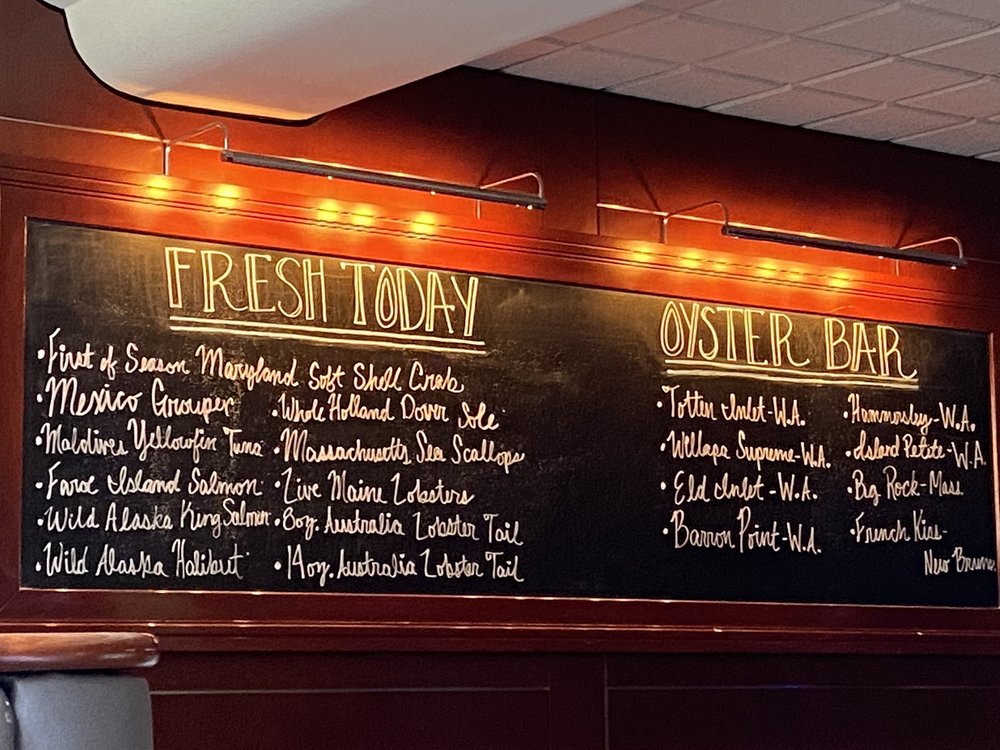 FRESH TODAY
•First of Season Maryland Soft Shell Crab
•Mexico Grouper
•Maldives Yellowfin Tuna
•Faroe Island Salmon
•Wild Alaska King Salmon
•Wild Alaska Halibut
•Whole Holland Dover Sole
•Massachusetts Sea Scallops
•Live Maine Lobsters
•8oz. Australia Lobster Tail
•14oz. Australia Lobster Tail
OYSTER BAR
•Totten Inlet-W.A.
•Willapa Supreme-W.A.
•Eld Inlet-W.A.
•Barron Point-W.A.
•Hammersley-W.A.
•Island Petite-W.A.
•Big Rock-Mass
•French Kiss-
New Bruns.